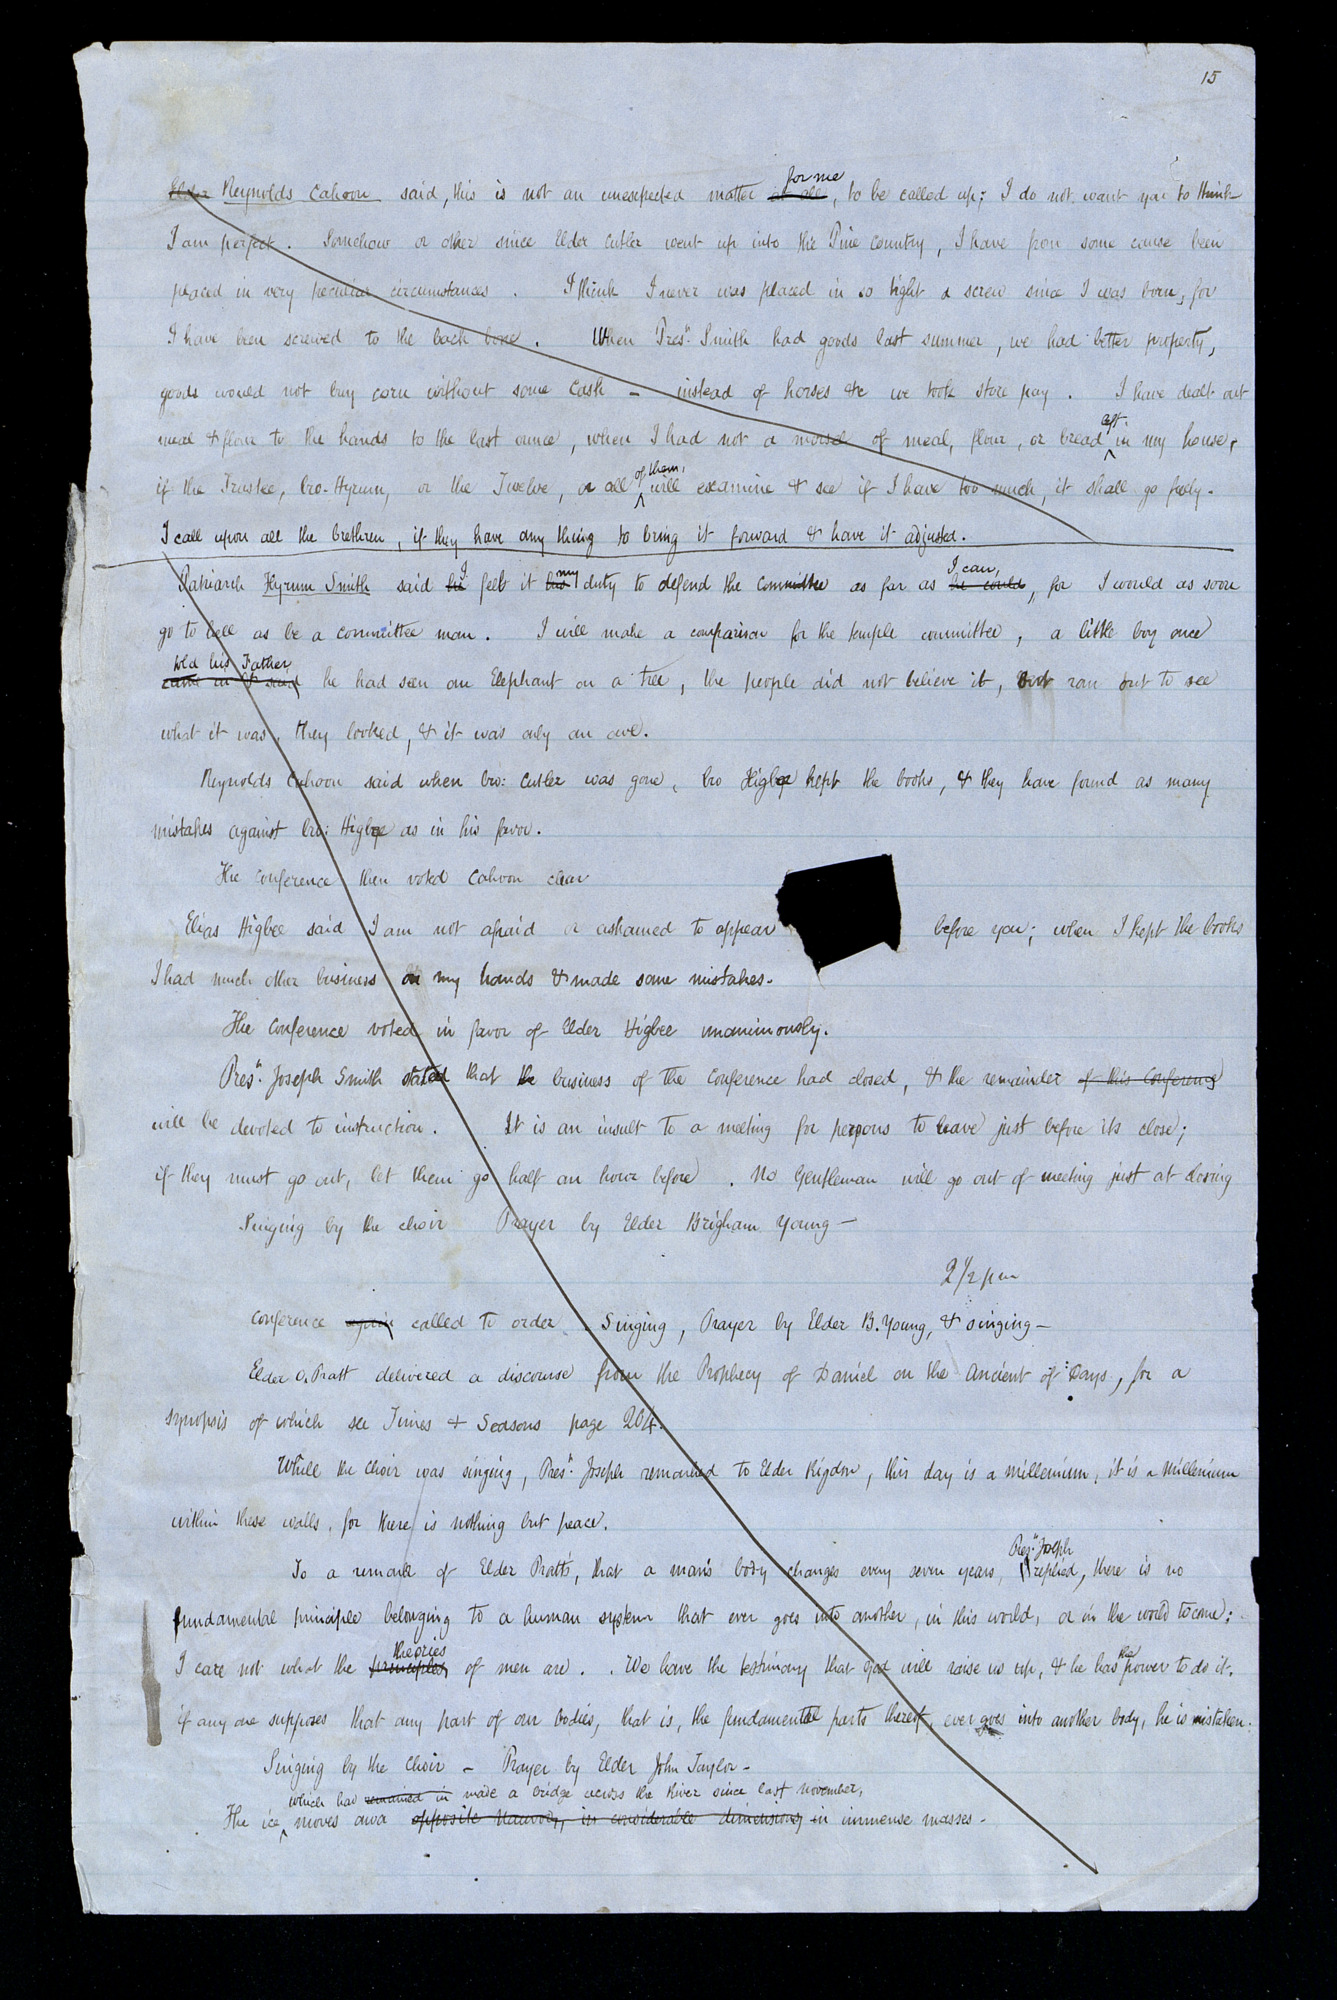 15
for me
Elder Reynolds Cahoon said, this is not an unexpected matter at all, to be called up; I do not want you to think
I am perfect. Somehow or other since Elder Cutler went up into the Pine Country, I have from some cause been
placed in very peculiar circumstances. I think I never was placed in so tight a screw since I was born, for
I have been screwed to the back bone. When Presn. Smith had goods last summer, we had better property,
goods would not buy corn without some cash – instead of horses &c we took store pay. I have dealt out
left
meal & flour to the hands to the last ounce, when I had not a morsel of meal, flour, or bread in my house,
of them,
if the Trustee, bro. Hyrum, or the Twelve, or all will examine & see if I have too much, it shall go freely.
I call upon all the brethren, if they have any thing to bring it forward & have it adjusted.
I my I can,
Patriarch Hyrum Smith said he felt it his duty to defend the Committee as far as he could, for I would as soon
go to hell as be a committee man. I will make a comparison for the temple committee, a little boy once
told his Father
came in & said he had seen an Elephant on a tree, the people did not believe it, but ran out to see
what it was, they looked, & it was only an owl.
Reynolds Cahoon said when bro: Cutler was gone, bro Higbee kept the books, & they have found as many
mistakes against bro: Higbee as in his favor.
The Conference then voted Cahoon clear
Elias Higbee said I am not afraid or ashamed to appear before you; when I kept the books
I had much other business on my hands & made some mistakes.
The Conference voted in favor of Elder Higbee unanimously.
Presn. Joseph Smith stated that the business of the Conference had closed, & the remainder of this Conference
will be devoted to instruction. It is an insult to a meeting for persons to leave just before its close;
if they must go out, let them go half an hour before. No Gentleman will go out of meeting just at closing
Singing by the choir Prayer by Elder Brigham Young –
2 1/2 pm
Conference again called to order. Singing, Prayer by Elder B. Young, & singing –
Elder O. Pratt delivered a discourse from the Prophecy of Daniel on the Ancient of Days, for a
synopsis of which see Times & Seasons page 204.
While the Choir was singing, Presn. Joseph remarked to Elder Rigdon, this day is a Millenium, it is a Millenium
within these walls, for there is nothing but peace.
Presn. Joseph
To a remark of Elder Pratt's, that a man's body changes every seven years, replied, there is no
fundamental principle belonging to a human system that ever goes into another, in this world, or in the world to come;
theories the
I care not what the principles of men are. We have the testimony that God will raise us up, & he has power to do it.
if any one supposes that any part of our bodies, that is, the fundamental parts thereof, ever goes into another body, he is mistaken.
Singing by the Choir – Prayer by Elder John Taylor –
which had remained in made a bridge across the River since last November,
The ice moves awa opposite Nauvoo, in considerable dimensions, in immense masses –